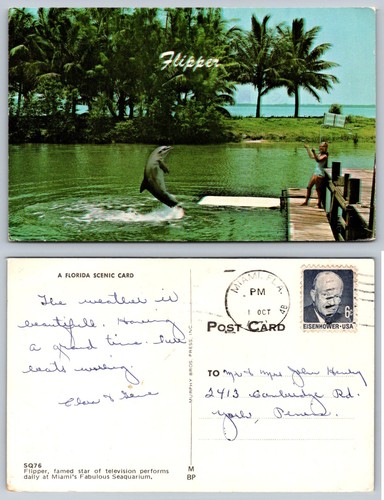 Flipper
A FLORIDA SCENIC CARD
The weather is
beautifull. Having
a grand time.
boats working.
SQ76
Flipper, famed star of television performs
daily at Miami's Fabulous Seaquarium.
MURPHY BROS. PRESS INC.
M
BP
MIAMI, FLA.
PM
1 OCT
POST CARD
6¢
EISENHOWER·USA
TO Mr & Mrs John
2413 Cambridge Rd.
York, Penna.